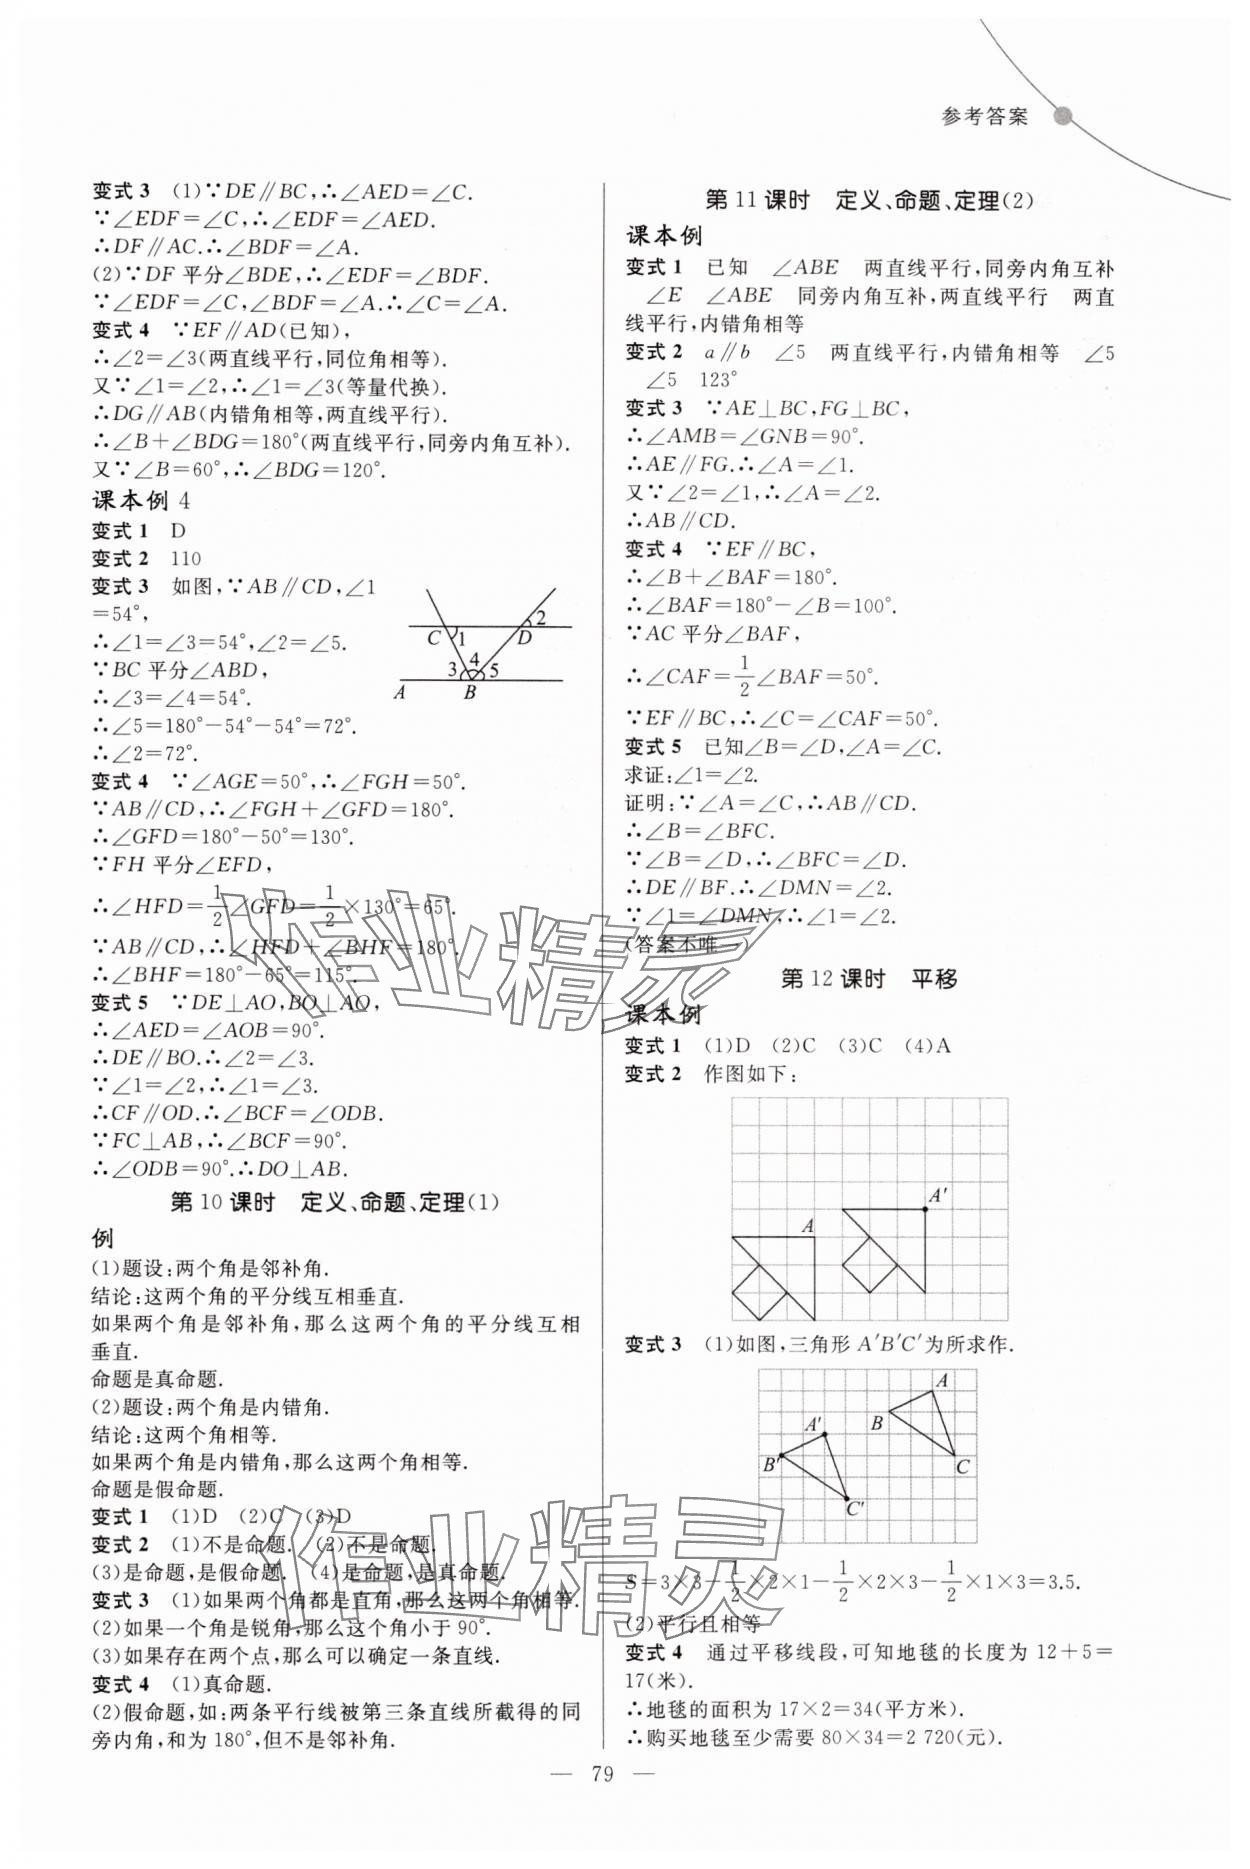 参考答案
变式3 (1)∵DE∥BC,∴∠AED=∠C.
∵∠EDF=∠C,∴∠EDF=∠AED.
∴DF∥AC.∴∠BDF=∠A.
(2)∵DF 平分∠BDE,∴∠EDF=∠BDF.
∵∠EDF=∠C,∠BDF=∠A.∴∠C=∠A.
变式4 ∵EF∥AD(已知),
∴∠2=∠3(两直线平行,同位角相等).
又∵∠1=∠2,∴∠1=∠3(等量代换).
∴DG∥AB(内错角相等,两直线平行).
∴∠B+∠BDG=180°(两直线平行,同旁内角互补).
又∵∠B=60°,∴∠BDG=120°.
课本例 4
变式1 D
变式2 110
变式3 如图,∵AB∥CD,∠1
=54°,
∴∠1=∠3=54°,∠2=∠5.
∵BC 平分∠ABD,
∴∠3=∠4=54°.
∴∠5=180°-54°-54°=72°.
∴∠2=72°.
C 1 D 2
3 4 5
A B
变式4 ∵∠AGE=50°,∴∠FGH=50°.
∵AB∥CD,∴∠FGH+∠GFD=180°.
∴∠GFD=180°-50°=130°.
∵FH 平分∠EFD,
∴∠HFD=1/2∠GFD=1/2×130°=65°.
∵AB∥CD,∴∠HFD+∠BHF=180°.
∴∠BHF=180°-65°=115°.
变式5 ∵DE⊥AO,BO⊥AO,
∴∠AED=∠AOB=90°.
∴DE∥BO.∴∠2=∠3.
∵∠1=∠2,∴∠1=∠3.
∴CF∥OD.∴∠BCF=∠ODB.
∵FC⊥AB,∴∠BCF=90°.
∴∠ODB=90°.∴DO⊥AB.
第10课时 定义、命题、定理(1)
例
(1)题设:两个角是邻补角.
结论:这两个角的平分线互相垂直.
如果两个角是邻补角,那么这两个角的平分线互相
垂直.
命题是真命题.
(2)题设:两个角是内错角.
结论:这两个角相等.
如果两个角是内错角,那么这两个角相等.
命题是假命题.
变式1 (1)D (2)C (3)D
变式2 (1)不是命题. (2)不是命题.
(3)是命题,是假命题. (4)是命题,是真命题.
变式3 (1)如果两个角都是直角,那么这两个角相等.
(2)如果一个角是锐角,那么这个角小于90°.
(3)如果存在两个点,那么可以确定一条直线.
变式4 (1)真命题.
(2)假命题,如:两条平行线被第三条直线所截得的同
旁内角,和为180°,但不是邻补角.
第11课时 定义、命题、定理(2)
课本例
变式1 已知 ∠ABE 两直线平行,同旁内角互补
∠E ∠ABE 同旁内角互补,两直线平行 两直
线平行,内错角相等
变式2 a∥b ∠5 两直线平行,内错角相等 ∠5
∠5 123°
变式3 ∵AE⊥BC,FG⊥BC,
∴∠AMB=∠GNB=90°.
∴AE∥FG.∴∠A=∠1.
又∵∠2=∠1,∴∠A=∠2.
∴AB∥CD.
变式4 ∵EF∥BC,
∴∠B+∠BAF=180°.
∴∠BAF=180°-∠B=100°.
∵AC 平分∠BAF,
∴∠CAF=1/2∠BAF=50°.
∵EF∥BC,∴∠C=∠CAF=50°.
变式5 已知∠B=∠D,∠A=∠C.
求证:∠1=∠2.
证明:∵∠A=∠C,∴AB∥CD.
∴∠B=∠BFC.
∵∠B=∠D,∴∠BFC=∠D.
∴DE∥BF.∴∠DMN=∠2.
∵∠1=∠DMN,∴∠1=∠2.
(答案不唯一)
第12课时 平移
课本例
变式1 (1)D (2)C (3)C (4)A
变式2 作图如下:
A A′
变式3 (1)如图,三角形 A′B′C′为所求作.
A
B A′
B′ C
C′
S=3×3-1/2×2×1-1/2×2×3-1/2×1×3=3.5.
(2)平行且相等
变式4 通过平移线段,可知地毯的长度为12+5=
17(米).
∴地毯的面积为17×2=34(平方米).
∴购买地毯至少需要80×34=2 720(元).
— 79 —
作业精灵
作业精灵